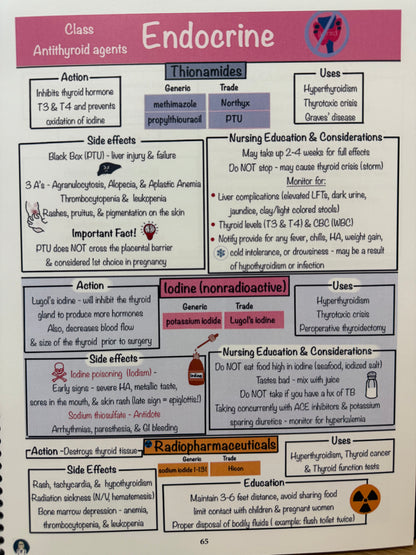 Class
Antithyroid agents
Endocrine
Thionamides
Action
Inhibits thyroid hormone
T3 & T4 and prevents
oxidation of iodine
Generic Trade
methimazole Northyx
propylthiouracil PTU
Uses
Hyperthyroidism
Thyrotoxic crisis
Graves' disease
Side effects
Black Box (PTU) - liver injury & failure
3 A's - Agranulocytosis, Alopecia, & Aplastic Anemia
Thrombocytopenia & leukopenia
Rashes, pruitus, & pigmentation on the skin
Important Fact!
PTU does NOT cross the placental barrier
& considered 1st choice in pregnancy
Nursing Education & Considerations
May take up 2-4 weeks for full effects
Do NOT stop - may cause thyroid crisis (storm)
Monitor for:
• Liver complications (elevated LFTs, dark urine,
jaundice, clay/light colored stools)
• Thyroid levels (T3 & T4) & CBC (WBC)
• Notify provide for any fever, chills, HA, weight gain,
cold intolerance, or drowsiness - may be a result
of hypothyroidism or infection
Iodine (nonradioactive)
Action
Lugol's iodine - will inhibit the thyroid
gland to produce more hormones
Also, decreases blood flow
& size of the thyroid prior to surgery
Generic Trade
potassium iodide Lugol's iodine
Uses
Hyperthyroidism
Thyrotoxic crisis
Peroperative thyroidectomy
Side effects
Iodine poisoning (Iodism) -
Early signs - severe HA, metallic taste,
sores in the mouth, & skin rash (late sign = epiglottis!)
Sodium thiosulfate - Antidote
Arrhythmias, paresthesia, & GI bleeding
Nursing Education & Considerations
Do NOT eat food high in iodine (seafood, iodized salt)
Tastes bad - mix with juice
Do NOT take if you have a hx of TB
Taking concurrently with ACE inhibitors & potassium
sparing diuretics - monitor for hyperkalemia
Radiopharmaceuticals
Action -Destroys thyroid tissue
Generic Trade
sodium iodide I-131 Hicon
Uses
Hyperthyroidism, Thyroid cancer
& Thyroid function tests
Side Effects
Rash, tachycardia, & hypothyroidism
Radiation sickness (N/V, hematemesis)
Bone marrow depression - anemia,
thrombocytopenia, & leukopenia
Education
Maintain 3-6 feet distance, avoid sharing food
limit contact with children & pregnant women
Proper disposal of bodily fluids ( example: flush toilet twice)
65